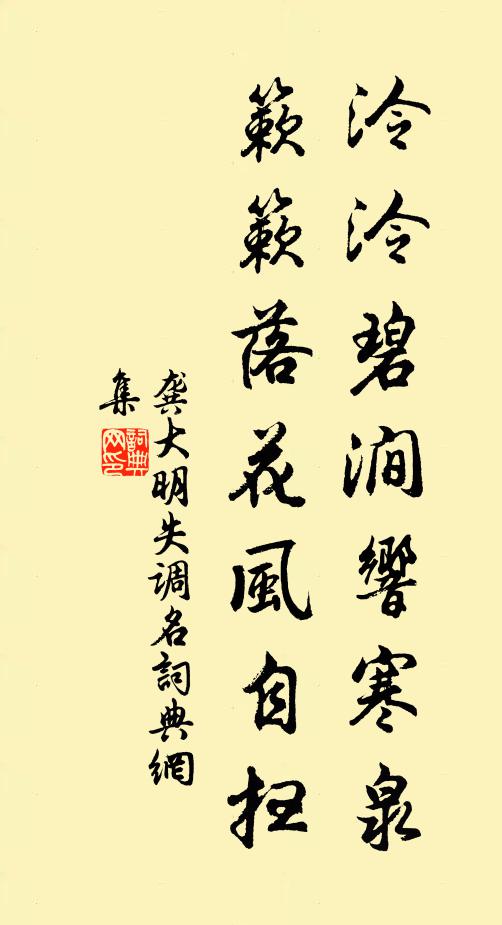 泠泠碧澗響寒泉
簌簌落花風自扫
龚大明失调名詞典網
集
詞典
网印